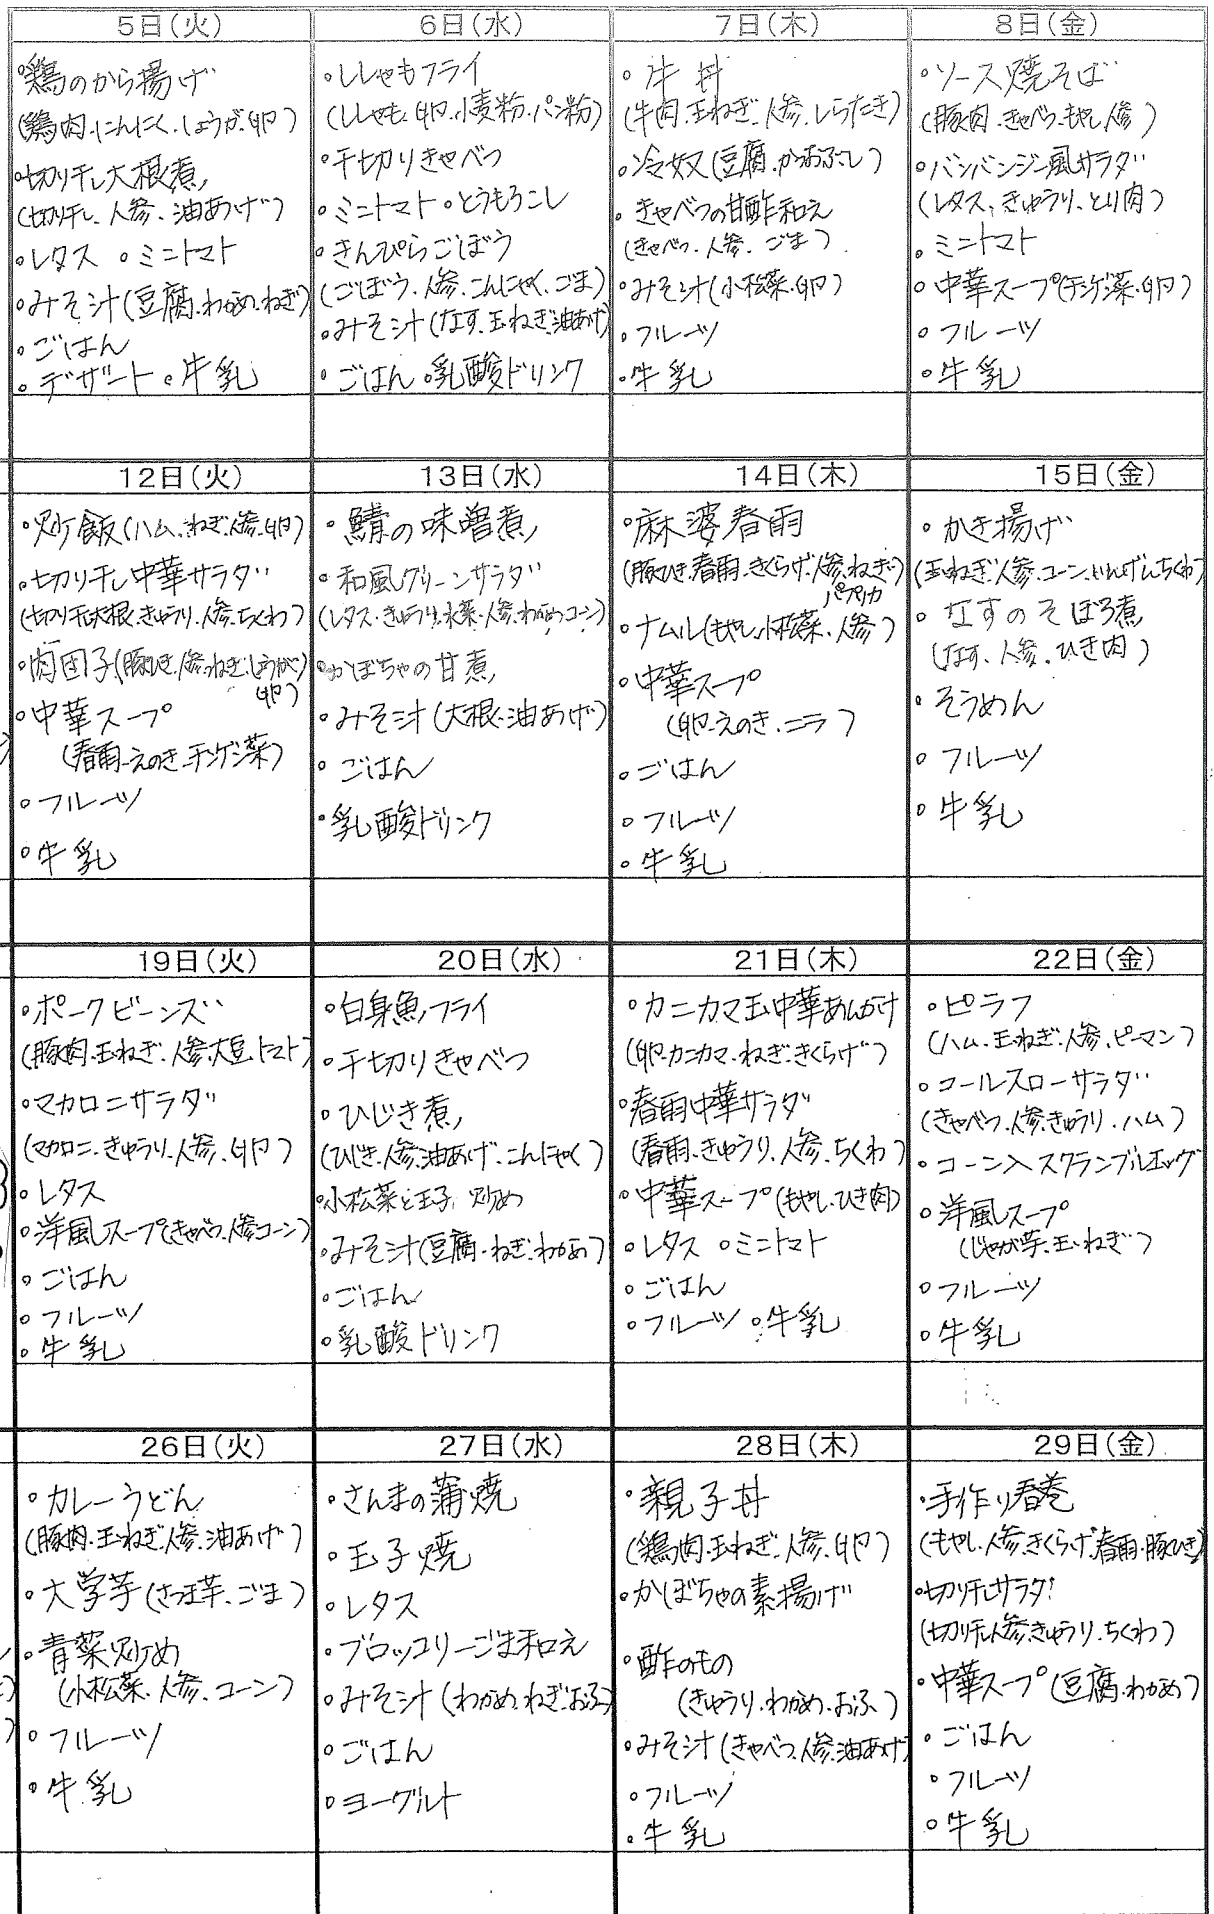 5日(火)
・鶏のから揚げ
(鶏肉、にんにく、しょうが、卵)
・切り干し大根煮
(切り干し、人参、油あげ)
・レタス ・ミニトマト
・みそ汁(豆腐、わかめ、ねぎ)
・ごはん
・デザート ・牛乳
6日(水)
・ししゃもフライ
(ししゃも、卵、小麦粉、パン粉)
・千切りきゃべつ
・ミニトマト ・とうもろこし
・きんぴらごぼう
(ごぼう、人参、こんにゃく、ごま)
・みそ汁(なす、玉ねぎ、油あげ)
・ごはん ・乳酸ドリンク
7日(木)
・牛丼
(牛肉、玉ねぎ、人参、しらたき)
・冷奴(豆腐、かつおぶし)
・きゃべつの甘酢和え
(きゃべつ、人参、ごま)
・みそ汁(小松菜、卵)
・フルーツ
・牛乳
8日(金)
・ソース焼そば
(豚肉、きゃべつ、もやし、人参)
・バンバンジー風サラダ
(レタス、きゅうり、とり肉)
・ミニトマト
・中華スープ(チンゲン菜、卵)
・フルーツ
・牛乳
12日(火)
・炒飯(ハム、ねぎ、人参、卵)
・切り干し中華サラダ
(切り干し大根、きゅうり、人参、ちくわ)
・肉団子(豚ひき、人参、ねぎ、しょうが)
卵)
・中華スープ
(春雨、えのき、チンゲン菜)
・フルーツ
・牛乳
13日(水)
・鯖の味噌煮
・和風グリーンサラダ
(レタス、きゅうり、水菜、人参、わかめ、コーン)
・かぼちゃの甘煮
・みそ汁(大根、油あげ)
・ごはん
・乳酸ドリンク
14日(木)
・麻婆春雨
(豚ひき、春雨、きくらげ、人参、ねぎ)
パプリカ
・ナムル(もやし、小松菜、人参)
・中華スープ
(卵、えのき、ニラ)
・ごはん
・フルーツ
・牛乳
15日(金)
・かき揚げ
(玉ねぎ、人参、コーン、いんげん、ちくわ)
・なすのそぼろ煮
(なす、人参、ひき肉)
・そうめん
・フルーツ
・牛乳
19日(火)
・ポークビーンズ
(豚肉、玉ねぎ、人参、大豆、トマト)
・マカロニサラダ
(マカロニ、きゅうり、人参、卵)
・レタス
・洋風スープ(きゃべつ、人参、コーン)
・ごはん
・フルーツ
・牛乳
20日(水)
・白身魚フライ
・千切りきゃべつ
・ひじき煮
(ひじき、人参、油あげ、こんにゃく)
・小松菜と玉子炒め
・みそ汁(豆腐、ねぎ、わかめ)
・ごはん
・乳酸ドリンク
21日(木)
・カニカマ玉中華あんかけ
(卵、カニカマ、ねぎ、きくらげ)
・春雨中華サラダ
(春雨、きゅうり、人参、ちくわ)
・中華スープ(もやし、ひき肉)
・レタス ・ミニトマト
・ごはん
・フルーツ ・牛乳
22日(金)
・ピラフ
(ハム、玉ねぎ、人参、ピーマン)
・コールスローサラダ
(きゃべつ、人参、きゅうり、ハム)
・コーン入スクランブルエッグ
・洋風スープ
(じゃが芋、玉ねぎ)
・フルーツ
・牛乳
26日(火)
・カレーうどん
(豚肉、玉ねぎ、人参、油あげ)
・大学芋(さつま芋、ごま)
・青菜炒め
(小松菜、人参、コーン)
・フルーツ
・牛乳
27日(水)
・さんまの蒲焼
・玉子焼
・レタス
・ブロッコリーごま和え
・みそ汁(わかめ、ねぎ、おふ)
・ごはん
・ヨーグルト
28日(木)
・親子丼
(鶏肉、玉ねぎ、人参、卵)
・かぼちゃの素揚げ
・酢のもの
(きゅうり、わかめ、おふ)
・みそ汁(きゃべつ、人参、油あげ)
・フルーツ
・牛乳
29日(金)
・手作り春巻
(もやし、人参、きくらげ、春雨、豚ひき)
・切り干しサラダ
(切り干し、人参、きゅうり、ちくわ)
・中華スープ(豆腐、わかめ)
・ごはん
・フルーツ
・牛乳